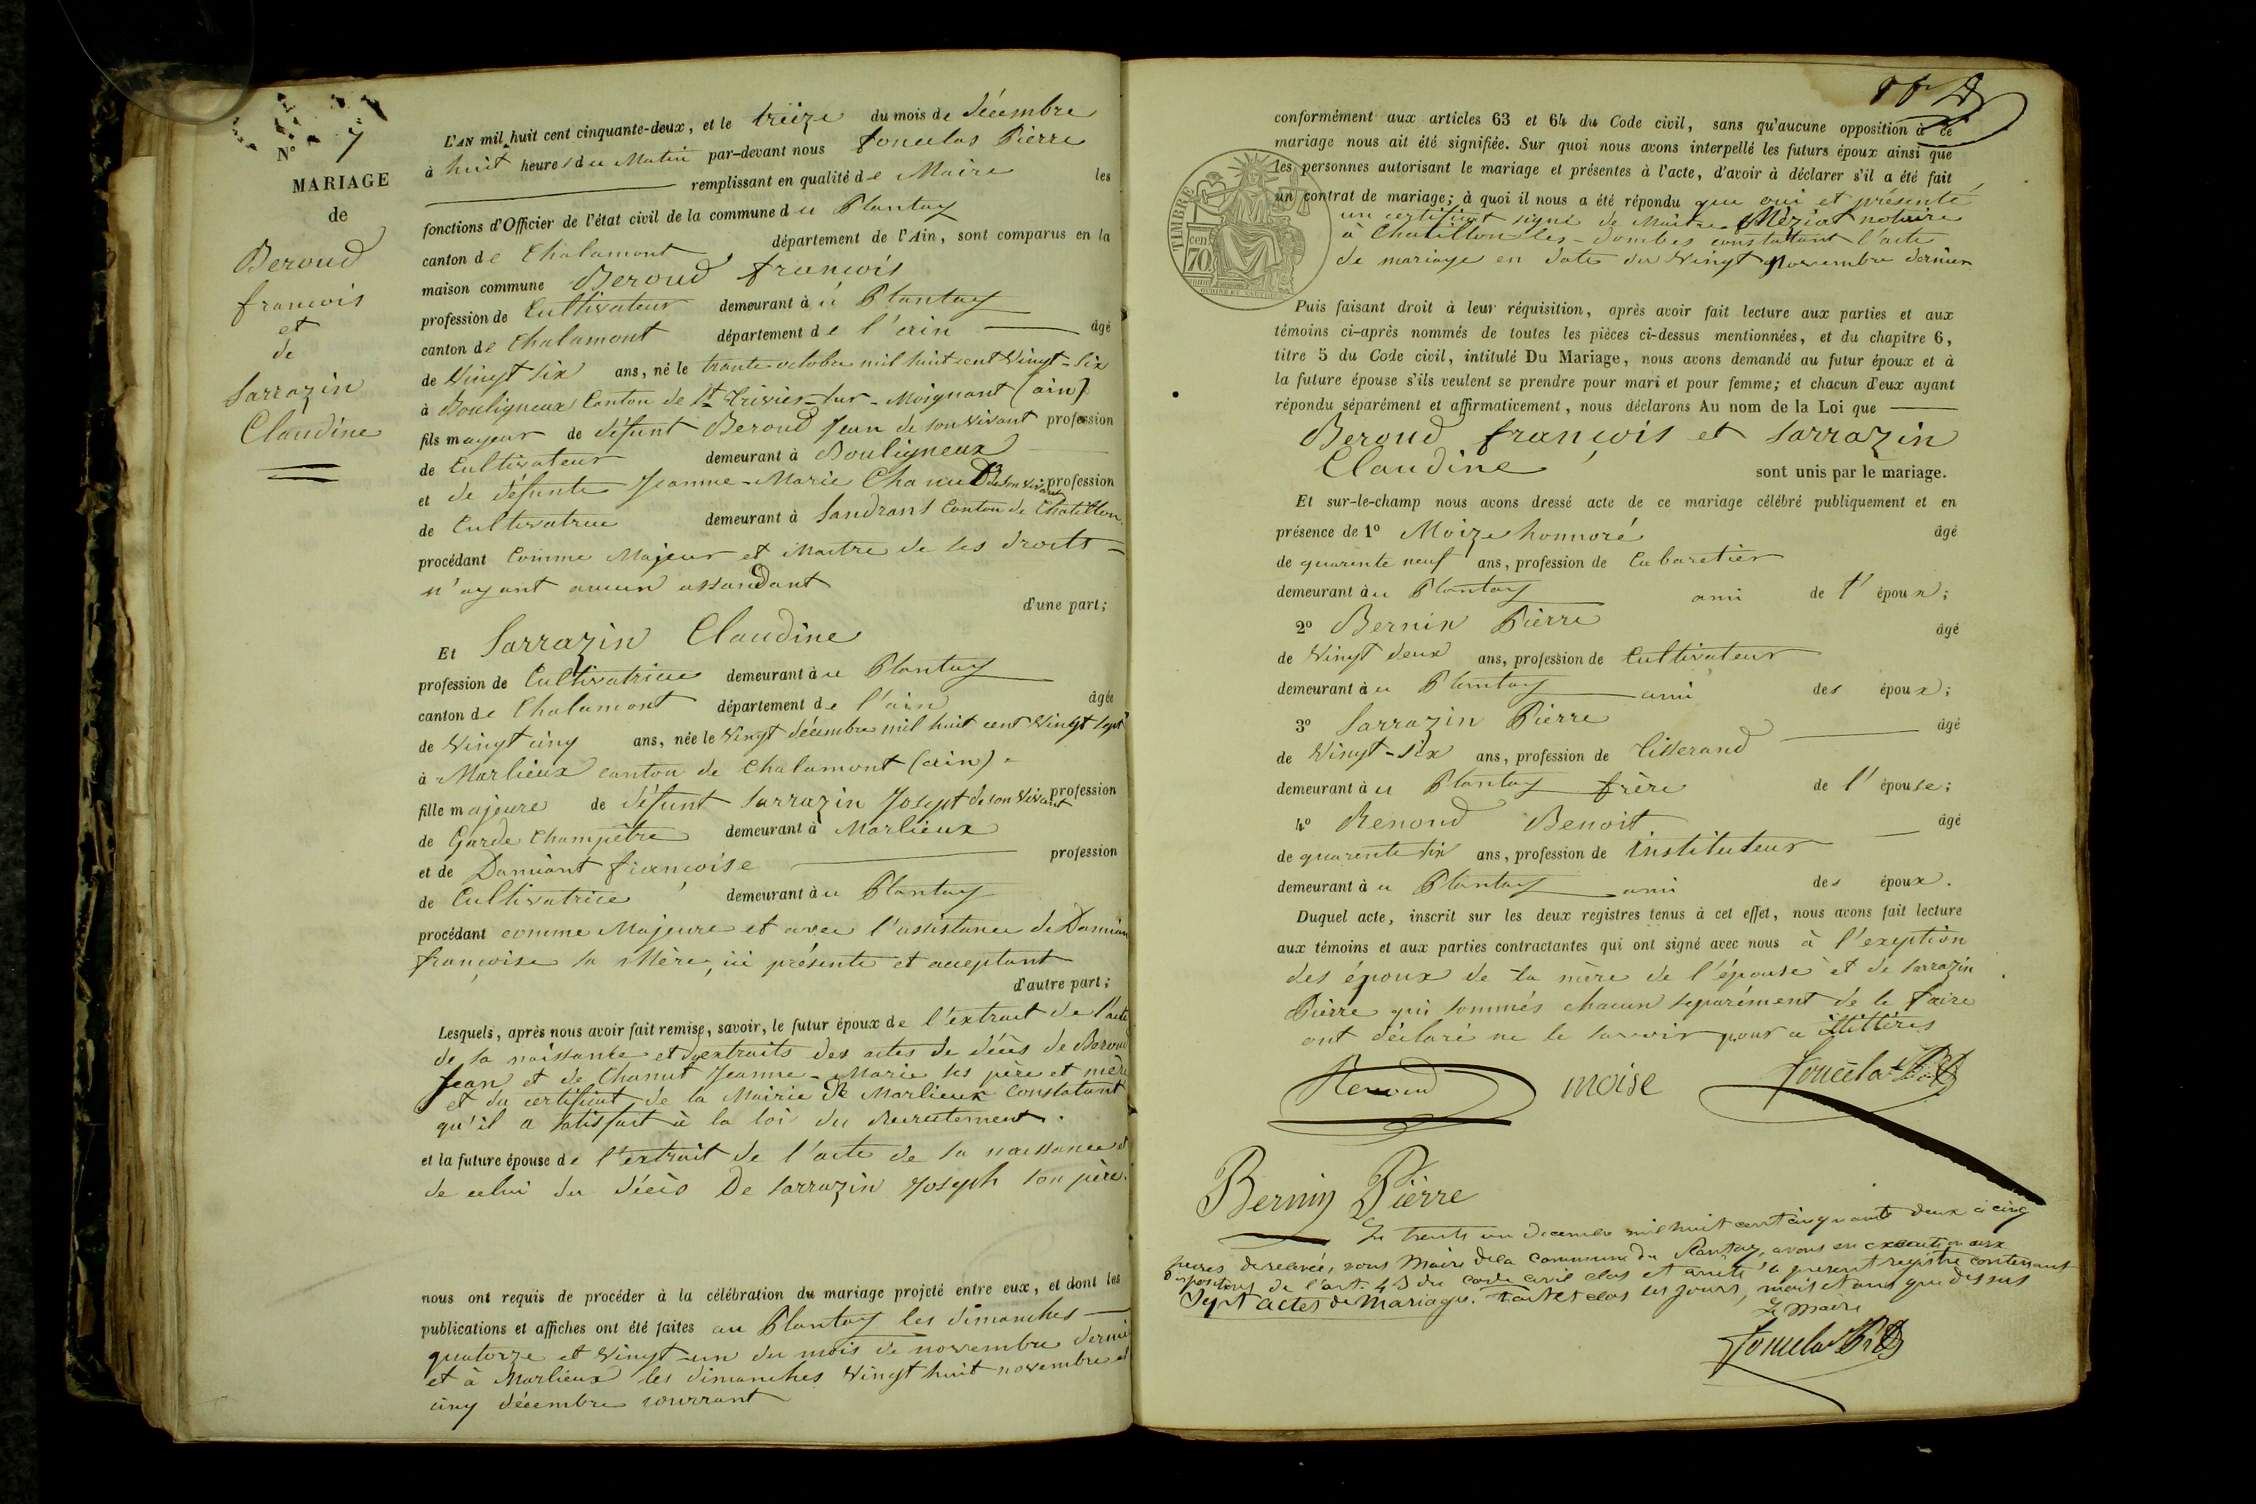 N° 7
MARIAGE
de
Beroud
francois
et
de
Sarrazin
Claudine
L'AN mil huit cent cinquante-deux, et le treize du mois de décembre
à huit heures du Matin par-devant nous Joncelas Pierre
remplissant en qualité de Maire les
fonctions d'Officier de l'état civil de la commune du Plantay
canton de Chalamont département de l'Ain, sont comparus en la
maison commune Beroud francois
profession de Cultivateur demeurant à u Plantay
canton de Chalamont département de l'ain âgé
de Vingt six ans, né le trante octobre mil huit cent Vingt-six
à Bouligneux Canton de St Trivier-sur-Moignant (ain)
fils mayeur de défunt Beroud Jean de son vivant profession
de Cultivateur demeurant à Bouligneux
et de défunte Jeanne-Marie Chanud de son vivant profession
de Cultivatrice demeurant à Sandrans Canton de Chatillon
procédant Comme Majeur et Maitre de ses droits
n'ayant aucun assandant
d'une part;
Et Sarrazin Claudine
profession de Cultivatrice demeurant à u Plantay
canton de Chalamont département de l'ain âgée
de Vingt cinq ans, née le Vingt décembre mil huit cent Vingt sept
à Marlieux canton de Chalamont (ain)
fille majeure de défunt Sarrazin Josept de son Vivant profession
de Garde Champètre demeurant à Marlieux
et de Damiant francoise profession
de Cultivatrice demeurant à u Plantay
procédant comme Majeure et avec l'assistance de Damian
françoise sa Mère, ici présente et acceptant
d'autre part;
Lesquels, après nous avoir fait remise, savoir, le futur époux de l'extrait de l'acte
de sa naissante et d'extraits des actes de décès de Beroud
Jean et de Chanut Jeanne-Marie ses père et mère
et du certificat de la Mairie de Marlieux Constatant
qu'il a satisfait à la loi du Recrutement.
et la future épouse de l'extrait de l'acte de sa naissance et
de celui du décès De Sarrazin Joseph son père.
nous ont requis de procéder à la célébration du mariage projeté entre eux, et dont les
publications et affiches ont été faites au Plantay les dimanches
quatorze et Vingt-un du mois de novembre dernier
et à Marlieux les dimanches Vingt huit novembre et
cinq décembre courrant
conformément aux articles 63 et 64 du Code civil, sans qu'aucune opposition à ce
mariage nous ait été signifiée. Sur quoi nous avons interpellé les futurs époux ainsi que
les personnes autorisant le mariage et présentes à l'acte, d'avoir à déclarer s'il a été fait
un contrat de mariage; à quoi il nous a été répondu que oui et présenté
un certificat signé de Maitre Méziat notaire
à Chatillon-les-Dombes constattant l'acte
de mariage en date du Vingt Novembre dernier
TIMBRE
cen
70
Puis faisant droit à leur réquisition, après avoir fait lecture aux parties et aux
témoins ci-après nommés de toutes les pièces ci-dessus mentionnées, et du chapitre 6,
titre 5 du Code civil, intitulé Du Mariage, nous avons demandé au futur époux et à
la future épouse s'ils veulent se prendre pour mari et pour femme; et chacun d'eux ayant
répondu séparément et affirmativement, nous déclarons Au nom de la Loi que
Beroud françois et Sarrazin
Claudine sont unis par le mariage.
Et sur-le-champ nous avons dressé acte de ce mariage célébré publiquement et en
présence de 1° Moize honnoré âgé
de quarente neuf ans, profession de Cabaretier
demeurant à u Plantay ami de l'époux;
2° Bernin Pierre âgé
de Vingt deux ans, profession de Cultivateur
demeurant à u Plantay ami des époux;
3° Sarrazin Pierre âgé
de Vingt-six ans, profession de Tisserand
demeurant à u Plantay frère de l'épouse;
4° Renoud Benoit âgé
de quarente six ans, profession de instituteur
demeurant à u Plantay ami des époux.
Duquel acte, inscrit sur les deux registres tenus à cet effet, nous avons fait lecture
aux témoins et aux parties contractantes qui ont signé avec nous à l'exeption
des époux de la mère de l'épouse et de Sarrazin
Pierre qui sommés chacun separément de le faire
ont déclaré ne le savoir pour a illittérés
Renoud moise Joncelas
Bernin Pièrre
Le trente un Decembre mil huit cent cinquante deux à cinq
heures de relevée, nous Maire dela Commune du Plantay, avons en execution aux
dispositions de l'art. 43 du code civil clos et arrêté le present registre contenant
Sept actes de Mariage. fait et clos les jours, mois et ans que dessus
Le Maire
Joncelas